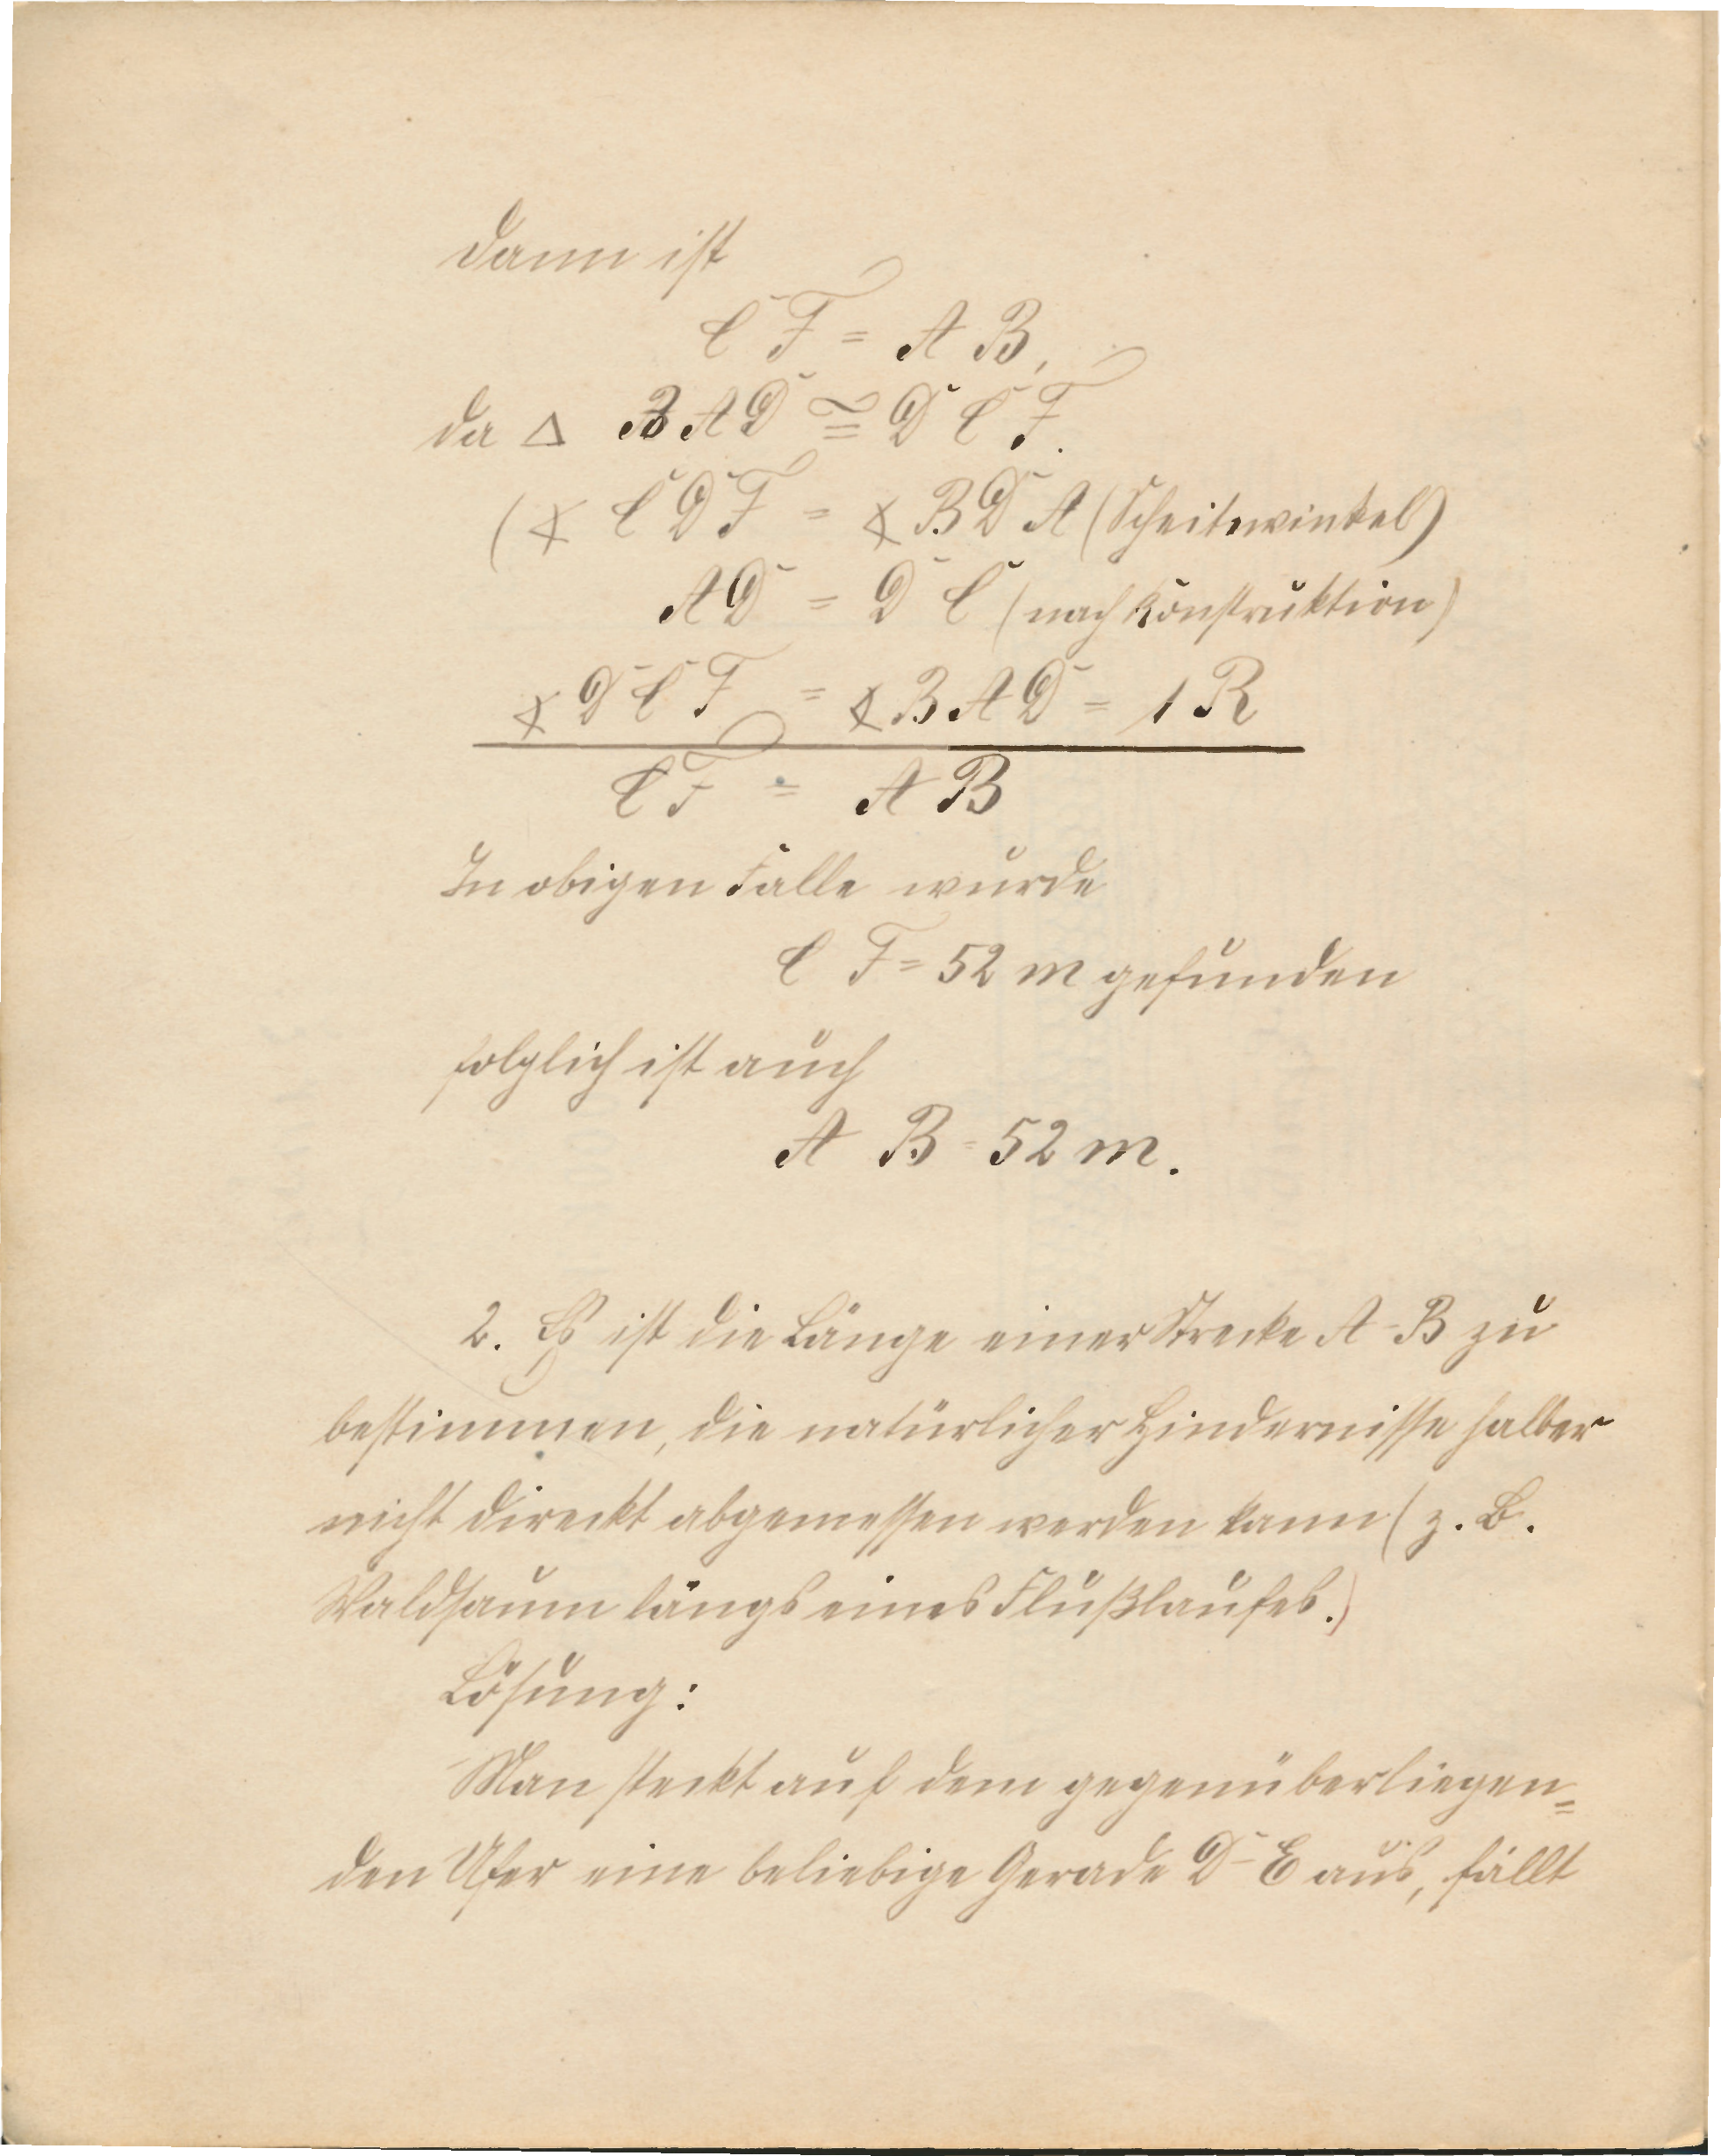 dann ist
C F = A B,
da △ BAD ≅ D C F.
(∢ C D F = ∢ B D A (Scheitewinkel)
A D = D C (nach Konstruktion)
∢ D C F = ∢ B A D = 1 R
C F = A B
In obigen Falle wurde
C F = 52 m gefunden
folglich ist auch
A B = 52 m.
2. Es ist die Länge einer Strecke A-B zu
bestimmen, die natürlicher Hindernisse halber
nicht direckt abgemessen werden kann (z. B.
Waldsaum längs eines Flußlaufes.)
Lösung:
Man steckt auf dem gegenüberliegen=
den Ufer eine beliebige Gerade D-E aus, fällt